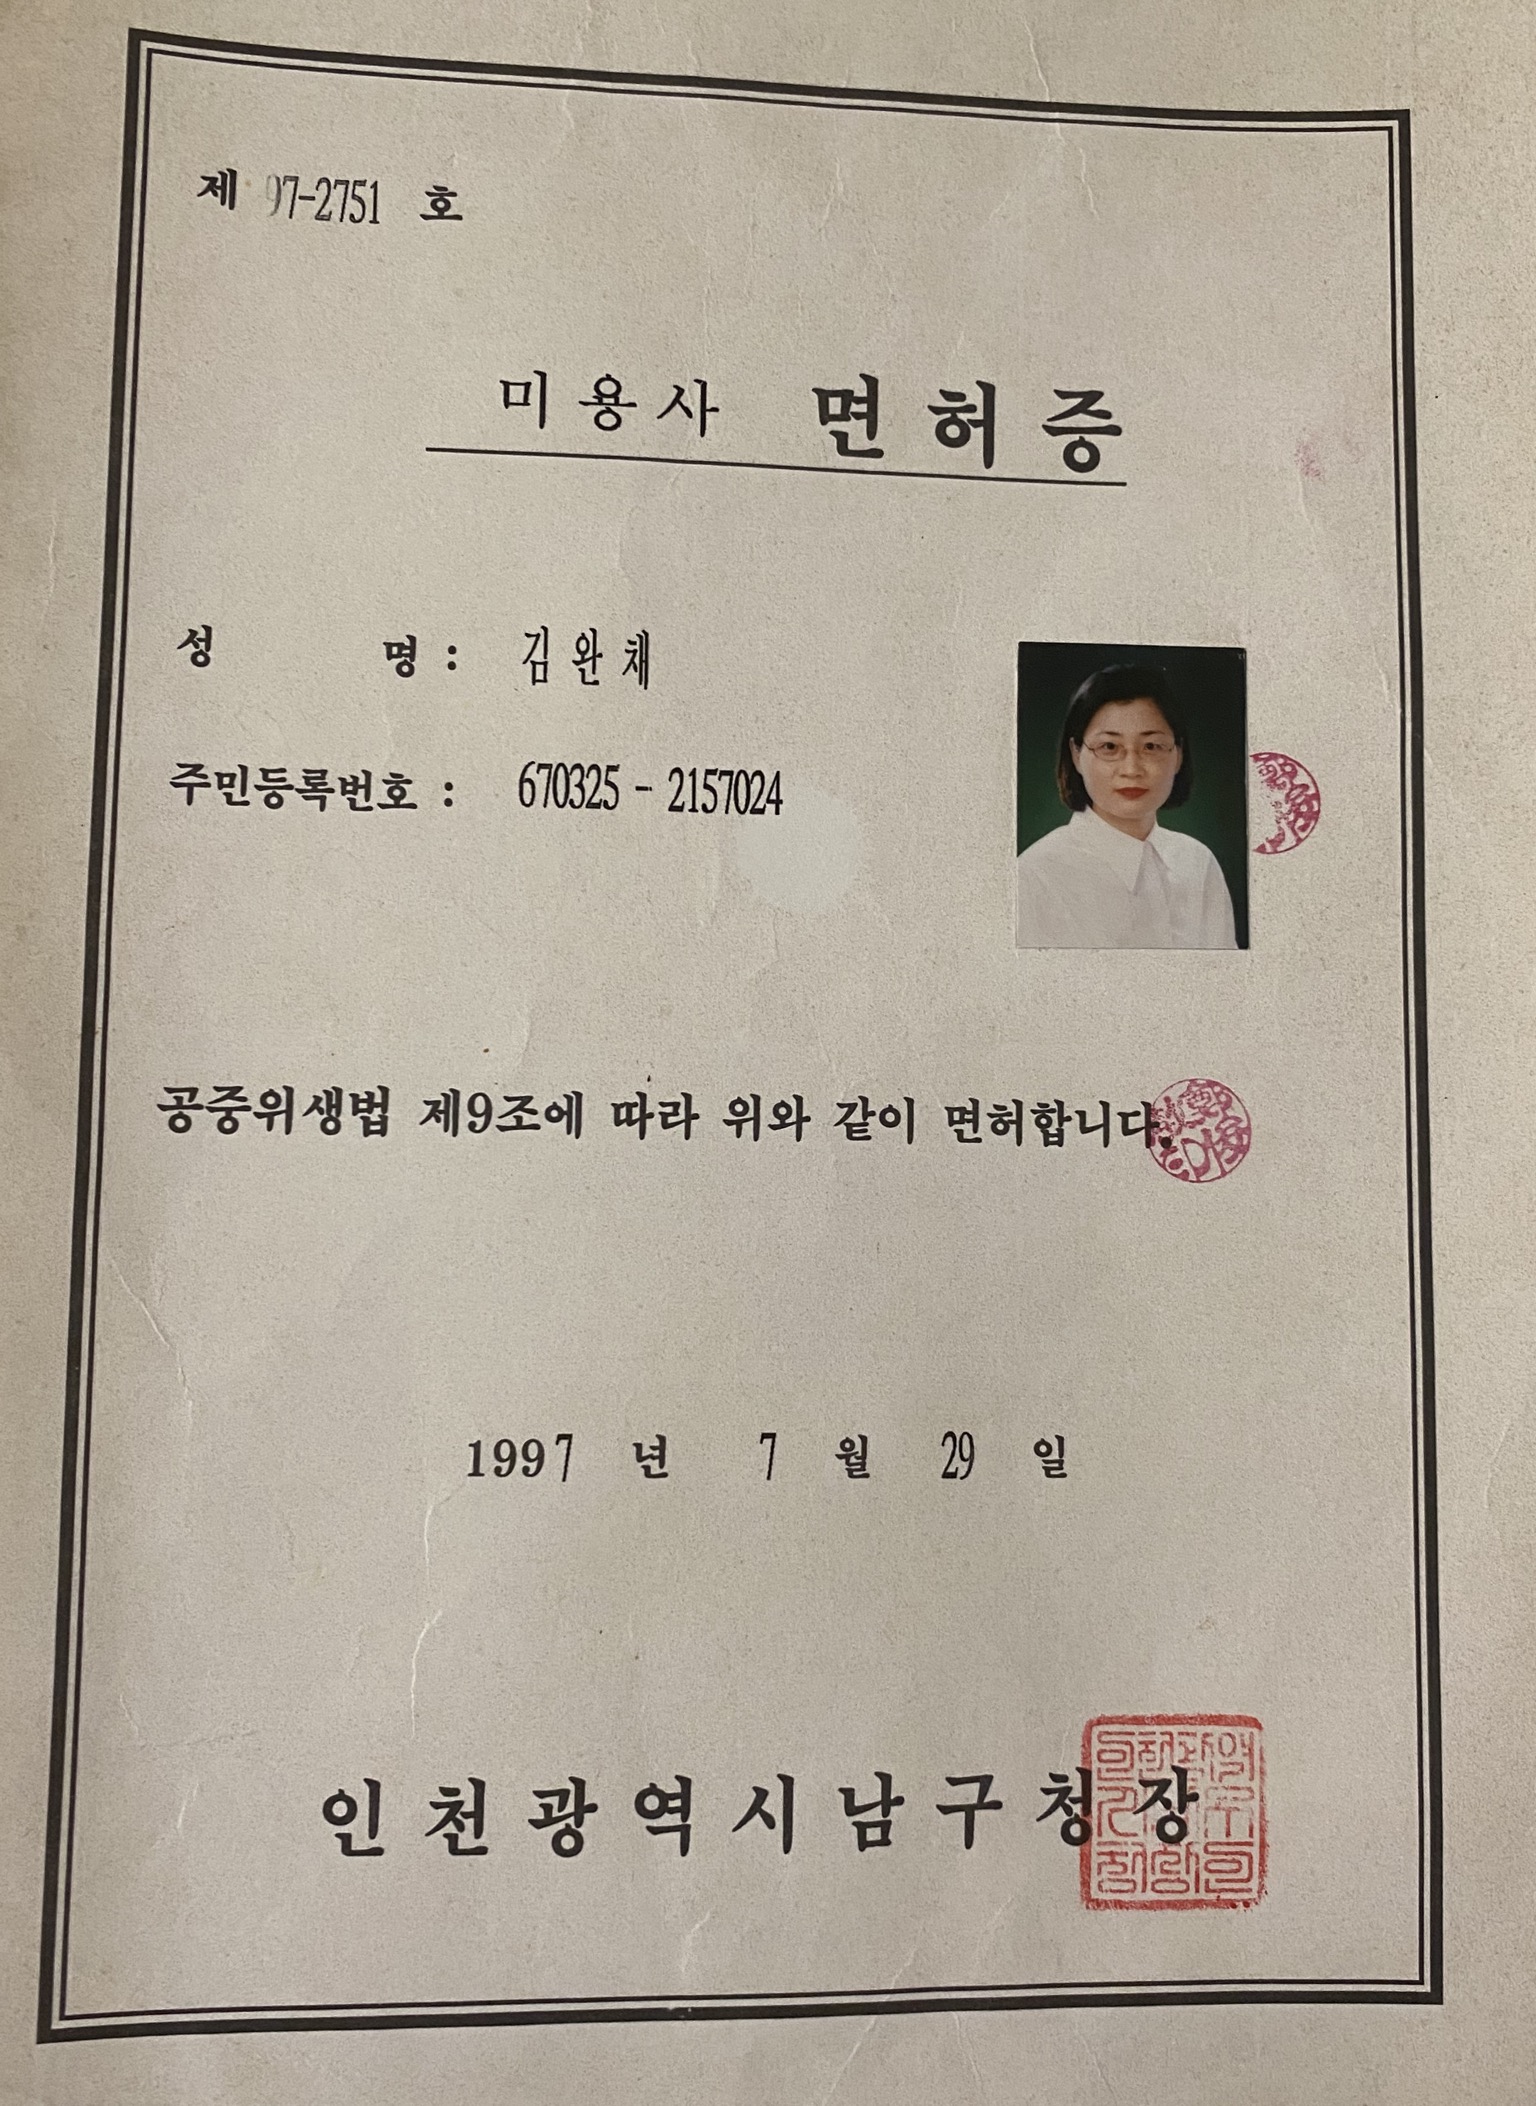 제 97-2751 호
미용사 면허증
성 명 : 김완채
주민등록번호 : 670325 - 2157024
공중위생법 제9조에 따라 위와 같이 면허합니다.
1997 년 7 월 29 일
인천광역시남구청장